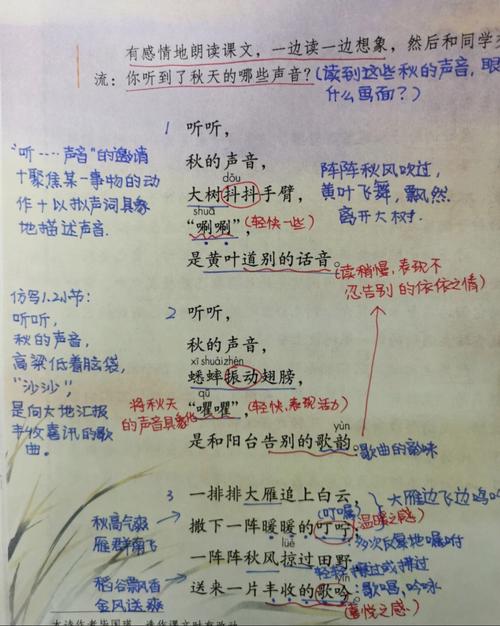 有感情地朗读课文，一边读一边想象，然后和同学交
流：你听到了秋天的哪些声音？(读到这些秋的声音，眼
什么画面？)
1 听听，
秋的声音，
dǒu
大树抖抖手臂，
shuā
“唰唰”，(轻快一些)
是黄叶道别的话音。
(读稍慢，表现不
忍告别的依依之情)
"听……声音"的邀请
+聚焦某一事物的动
作+以拟声词具象
地描述声音.
阵阵秋风吹过，
黄叶飞舞，飘然
离开大树.
仿写1.2小节：
听听，
秋的声音，
高粱低着脑袋，
"沙沙"，
是向大地汇报
丰收喜讯的歌
曲。
2 听听，
秋的声音，
xī shuài zhèn
蟋蟀振动翅膀，
qú
“㘗㘗”，(轻快，表现活力)
将秋天
的声音具象化
yùn
是和阳台告别的歌韵。歌曲的韵味
3 一排排大雁追上白云，大雁边飞边鸣叫
(叮嘱)
撒下一阵暖暖的叮咛，(温暖之感)
多次反复地嘱咐
lüè
一阵阵秋风掠过田野，轻轻擦过或拂过
yín
送来一片丰收的歌吟。:歌唱，吟咏
(喜悦之感)
秋高气爽
雁群南飞
稻谷飘香
金风送爽